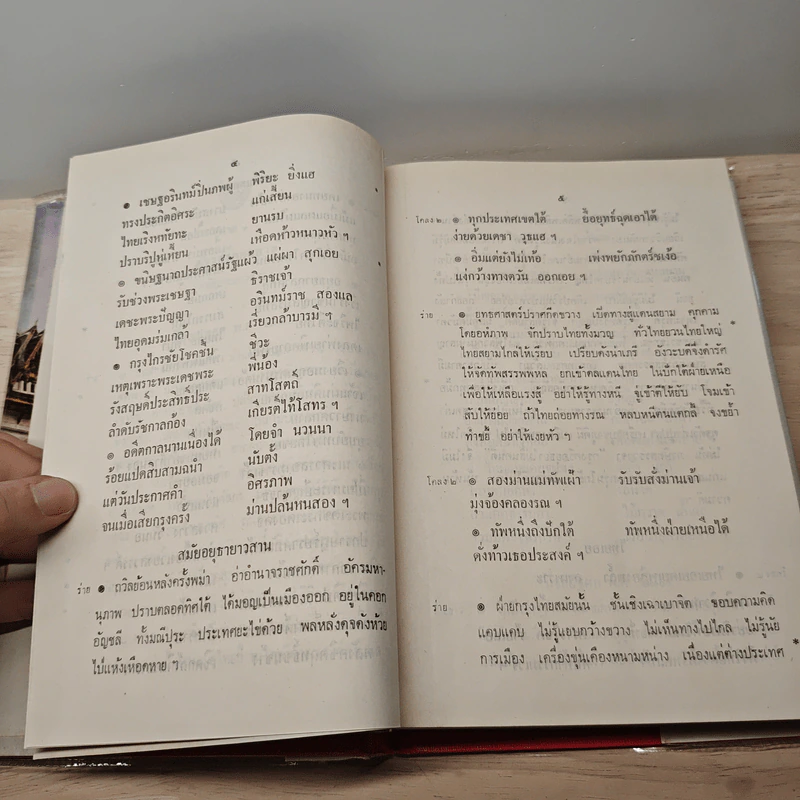 ๔
๏ เชษฐอรินทม์ปิ่นภพผู้ พิริยะ ยิ่งแฮ
ทรงประกิตอิศระ แก่เสี้ยน
ไทยเริงหทัยทะ ยานรบ
ปราบริปูหู่เหี้ยน เหือดห้าวหนาวหัว ฯ
๏ ขนิษฐนาถประศาสน์รัฐแผ้ว แผ่ผา สุกเอย
รับช่วงพระเชษฐา ธิราชเจ้า
เดชะพระปัญญา อรินทม์ราช สองแล
ไทยอุดมร่มเกล้า เรี่ยวกล้าบารมี ฯ
๏ กรุงไกรชัยโชคชั้น ชีวะ
เหตุเพราะพระเดชพระ พี่น้อง
รังสฤษต์ประสิทธิ์ประ สาทโสตถิ์
ลำดับรัชกาลก้อง เกียรติ์ไท้โสทร ฯ
๏ อดีตกาลนานเนื่องได้ โดยจำ นวนนา
ร้อยแปดสิบสามถนำ นับตั้ง
แต่วันประกาศคำ อิศรภาพ
จนเมื่อเสียกรุงครั้ง ม่านปล้นหนสอง ฯ
สมัยอยุธยาอวสาน
ร่าย ๏ ถวิลย้อนหลังครั้งพม่า อ่าอำนาจราชศักดิ์ อัครมหา-
นุภาพ ปราบตลอดทิศได้ ได้มอญเป็นเมืองออก อยู่ในคอก
อัญชลี ทั้งมณีปุระ ประเทศยะไข่ด้วย พลหลั่งดุจดังห้วย
ไป่แห้งเหือดหาย ฯ
๕
โคลง ๒ ๏ ทุกประเทศเขตใต้ ยื้อยุทธ์ฉุดเอาได้
ง่ายด้วยเดชา วุธแฮ ฯ
๏ อิ่มแต่ยำไม่เท้อ เพ่งพยักภักดิ์ชเง้อ
แง่กว้างทางตวัน ออกเอย ฯ
ร่าย ๏ ยุทธศาสตร์ปราศกีดขวาง เบิดทางสู่แดนสยาม คุกคาม
โดยอหิภาพ จักปราบไทยทั้งมวญ ทั่วไทยยวนไทยใหญ่
ไทยสยามไกลให้เรียบ เปรียบดังน่าเภรี อังวะบดีจึ่งดำรัศ
ให้จัดทัพสรรพพหล ยกเข้าดลแดนไทย ในบึกใต้ฝ่ายเหนือ
เพื่อให้เหลือแรงสู้ อย่าให้รู้ทางหนี จู่เข้าตีให้ยับ โจมเข้า
สับให้ย่อย ถ้าไทยถ่อยทางรณ หลบหนีดนแดกลี้ จงขยำ้
ทำชยี อย่าให้เงยหัว ฯ
โคลง ๒ ๏ สองม่านแม่ทัพเฝ้า รับรับสั่งม่านเจ้า
มุ่งจ้องคลองรณ ฯ
๏ ทัพหนึ่งถึงปักใต้ ทัพหนึ่งฝ่ายเหนือได้
ดั่งท้าวเธอประสงค์ ฯ
ร่าย ๏ ฝ่ายกรุงไทยสมัยนั้น ชั้นเชิงเฉาเบาจิต ขอบความคิด
แคบแคบ ไม่รู้แอบกว้างขวาง ไม่เห็นทางไปไกล ไม่รู้นัย
การเมือง เครื่องขุ่นเคืองหนามหน่าง เนื่องแต่ต่างประเทศ